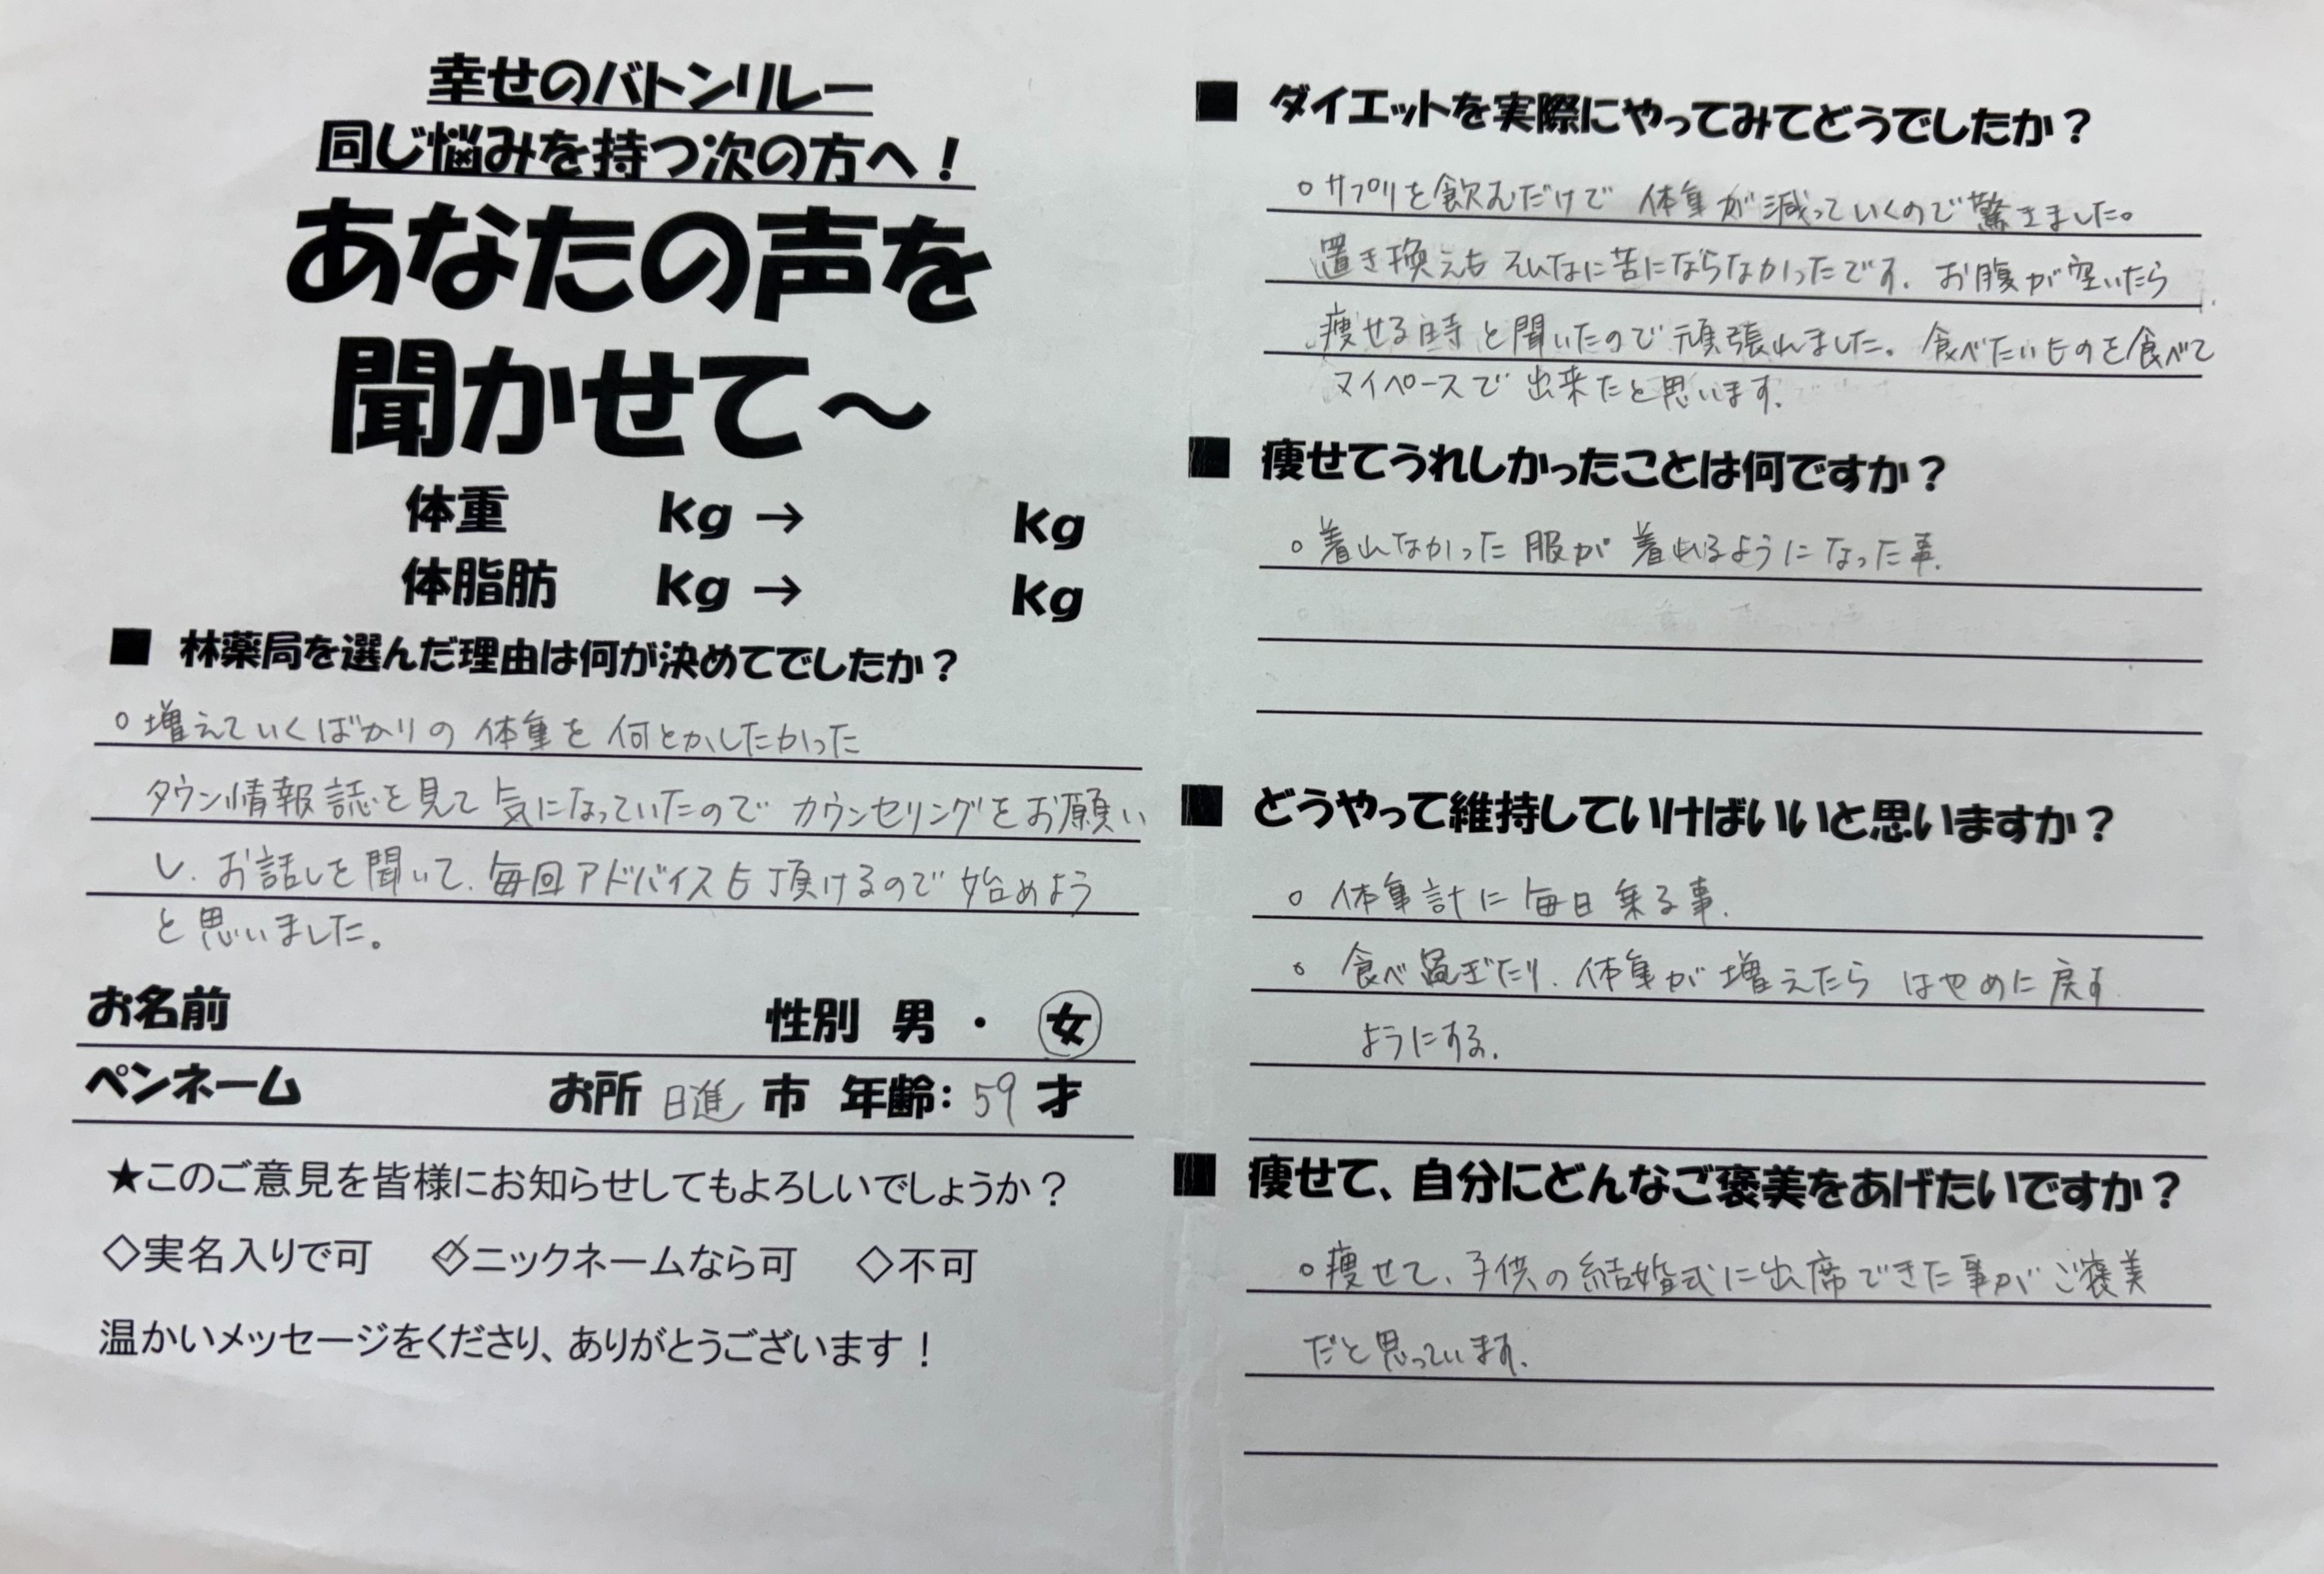 幸せのバトンリレー
同じ悩みを持つ次の方へ！
あなたの声を
聞かせて～
体重 kg → kg
体脂肪 kg → kg
■ 林薬局を選んだ理由は何が決めてでしたか？
○ 増えていくばかりの 体重を 何とかしたかった
タウン情報誌を見て 気になっていたので カウンセリングをお願い
し、お話しを聞いて、毎回アドバイスも頂けるので 始めよう
と思いました。
お名前 性別 男 ・ 女
ペンネーム お所 日進 市 年齢： 59 才
★このご意見を皆様にお知らせしてもよろしいでしょうか？
◇実名入りで可 ◇ニックネームなら可 ◇不可
温かいメッセージをくださり、ありがとうございます！
■ ダイエットを実際にやってみてどうでしたか？
○ サプリを飲むだけで 体重が減っていくので驚きました。
置き換えもそんなに苦にならなかったです。お腹が空いたら
痩せる時と聞いたので頑張れました。食べたいものを食べて
マイペースで出来たと思います。
■ 痩せてうれしかったことは何ですか？
○ 着れなかった服が 着れるようになった事。
■ どうやって維持していけばいいと思いますか？
○ 体重計に毎日乗る事。
○ 食べ過ぎたり、体重が増えたら はやめに戻す
ようにする。
■ 痩せて、自分にどんなご褒美をあげたいですか？
○ 痩せて、子供の結婚式に出席できた事がご褒美
だと思っています。